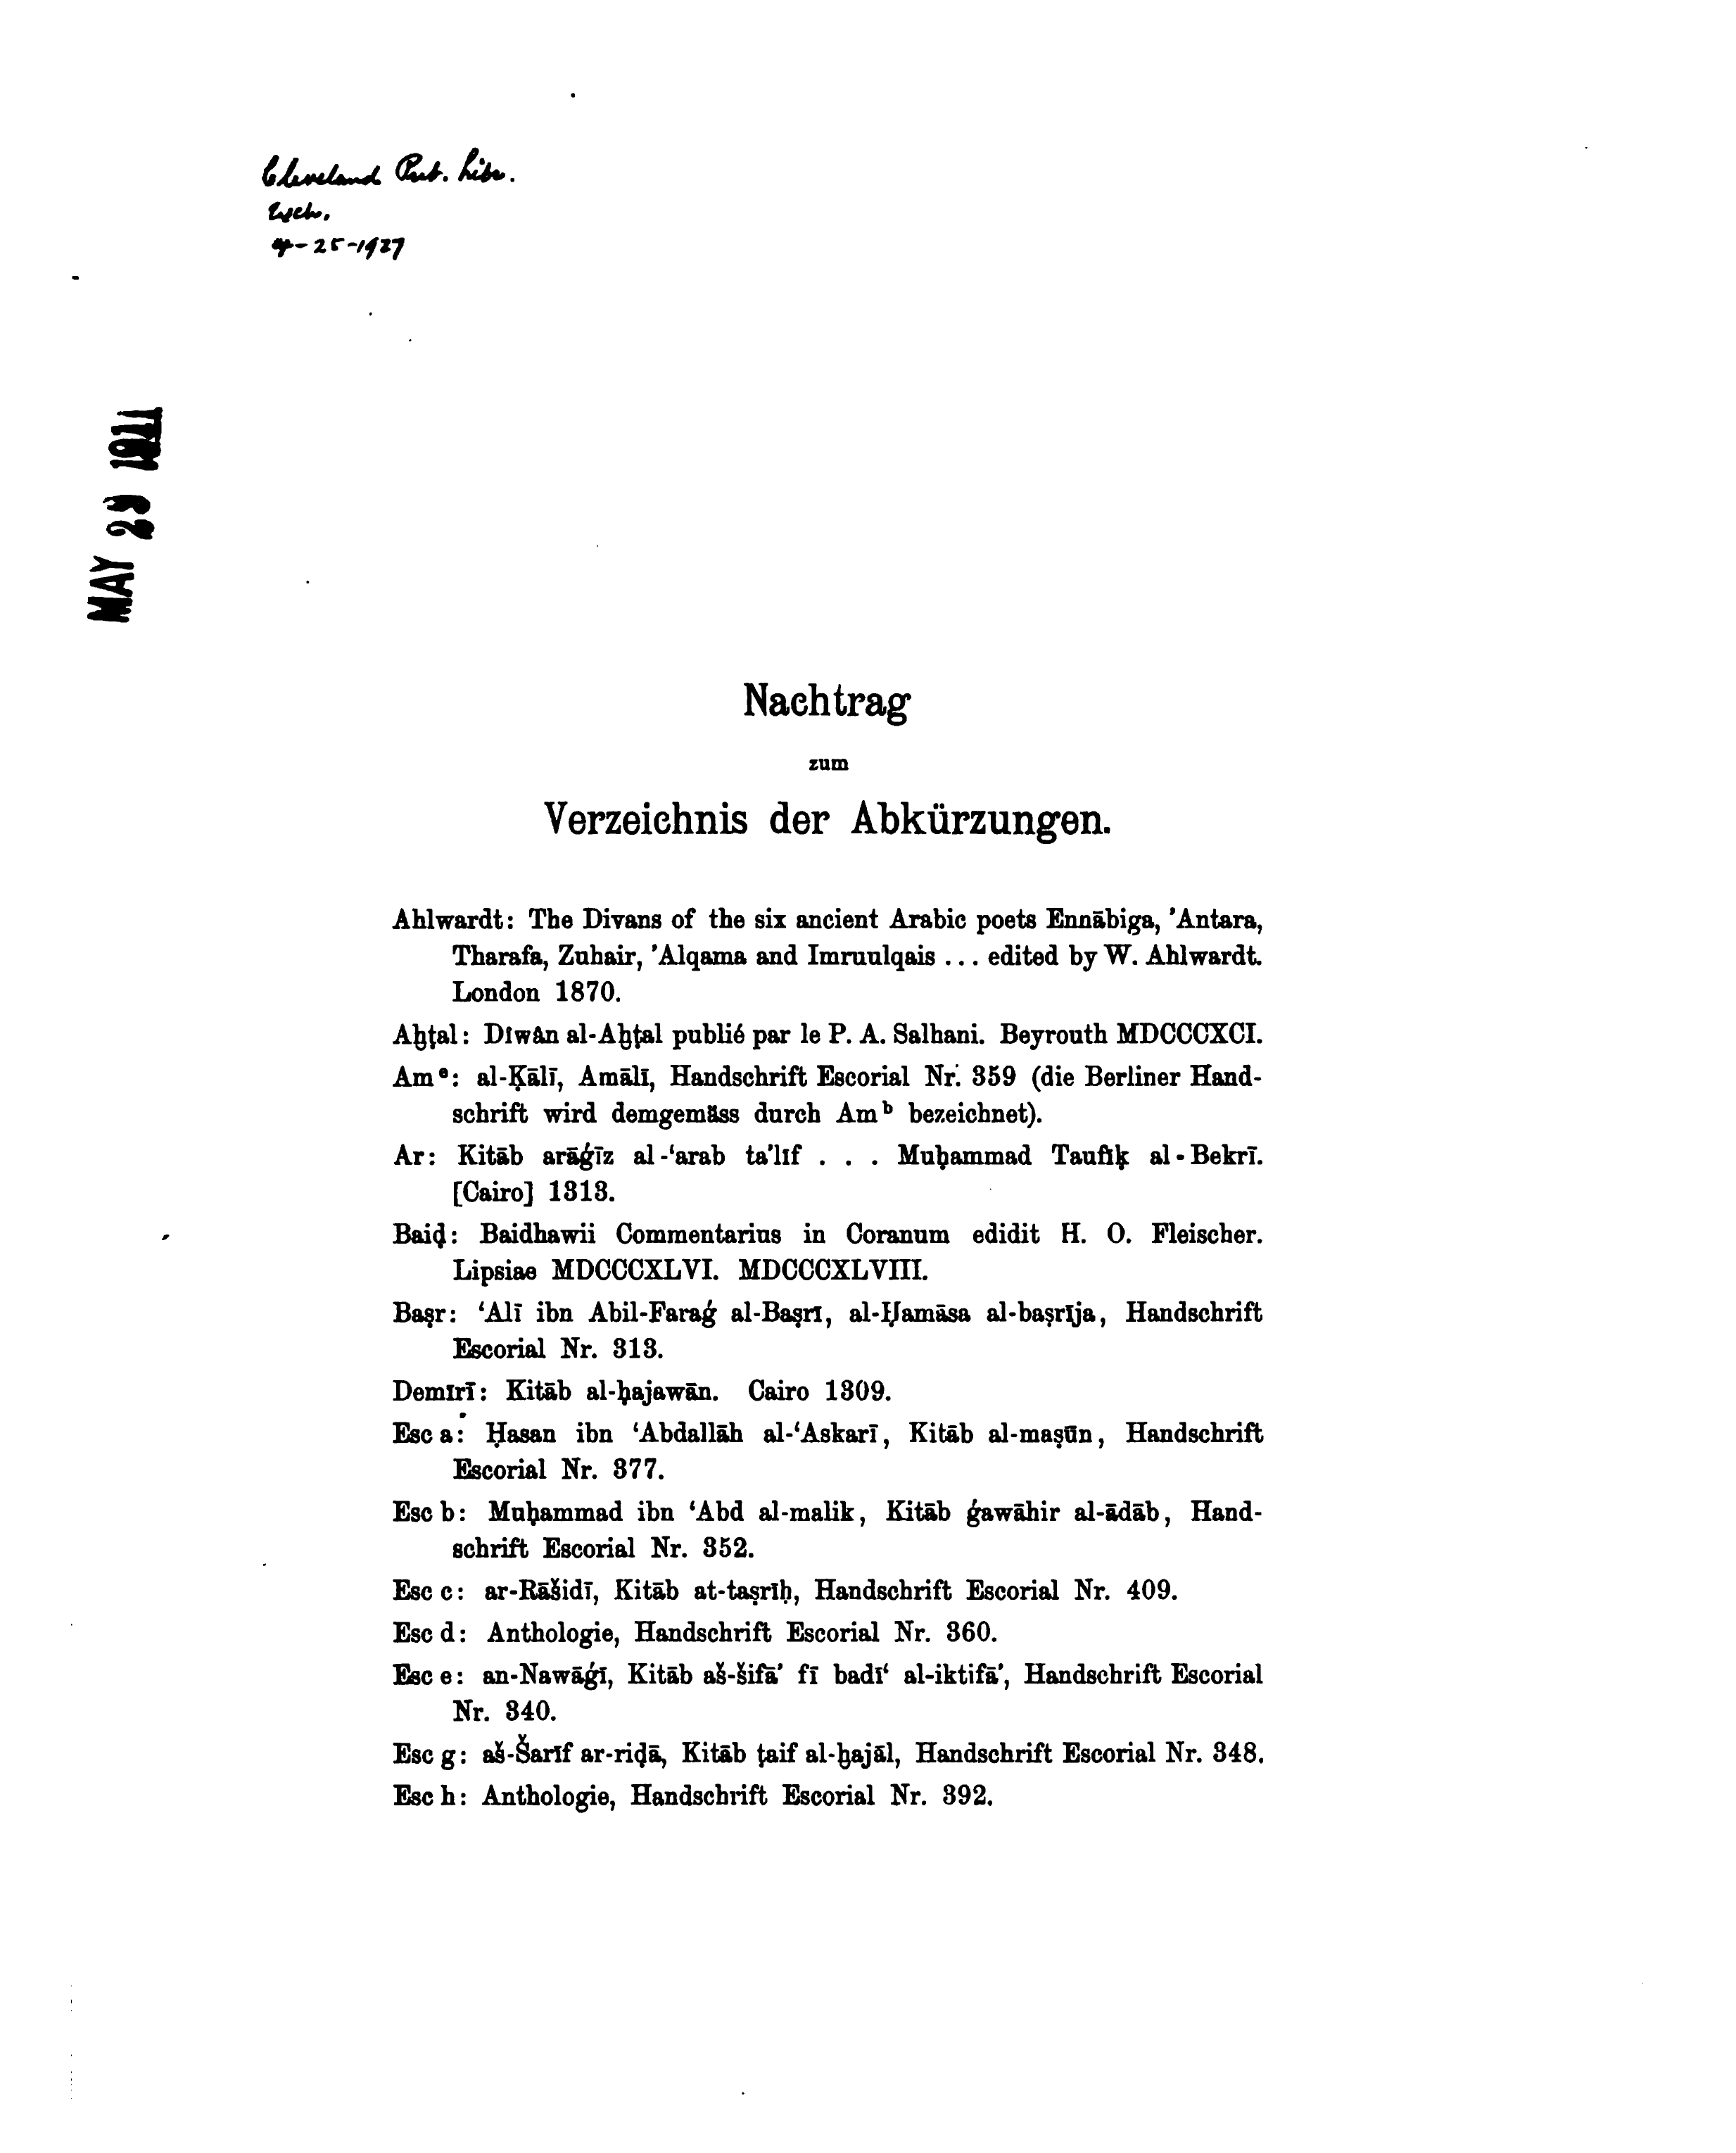 Cleveland Pub. Libr.
Exch.
4-25-1927
MAY 29 1911
Nachtrag
zum
Verzeichnis der Abkürzungen.
Ahlwardt: The Divans of the six ancient Arabic poets Ennābiga, ’Antara,
Tharafa, Zuhair, ’Alqama and Imruulqais ... edited by W. Ahlwardt.
London 1870.
Aḫṭal: Dîwân al-Aḫṭal publié par le P. A. Salhani. Beyrouth MDCCCXCI.
Amᵉ: al-Ḳālī, Amālī, Handschrift Escorial Nr. 359 (die Berliner Hand-
schrift wird demgemäss durch Amᵇ bezeichnet).
Ar: Kitāb arāǵīz al-‘arab ta’līf . . . Muḥammad Taufīḳ al-Bekrī.
[Cairo] 1313.
Baiḍ: Baidhawii Commentarius in Coranum edidit H. O. Fleischer.
Lipsiae MDCCCXLVI. MDCCCXLVIII.
Baṣr: ‘Alī ibn Abil-Faraǵ al-Baṣrī, al-Ḥamāsa al-baṣrīja, Handschrift
Escorial Nr. 313.
Demīrī: Kitāb al-ḥajawān. Cairo 1309.
Esc a: Ḥasan ibn ‘Abdallāh al-‘Askarī, Kitāb al-maṣūn, Handschrift
Escorial Nr. 377.
Esc b: Muḥammad ibn ‘Abd al-malik, Kitāb ǵawāhir al-ādāb, Hand-
schrift Escorial Nr. 352.
Esc c: ar-Rāšidī, Kitāb at-taṣrīḥ, Handschrift Escorial Nr. 409.
Esc d: Anthologie, Handschrift Escorial Nr. 360.
Esc e: an-Nawāǵī, Kitāb aš-šifā’ fī badī‘ al-iktifā’, Handschrift Escorial
Nr. 340.
Esc g: aš-Šarīf ar-riḍā, Kitāb ṭaif al-ḫajāl, Handschrift Escorial Nr. 348.
Esc h: Anthologie, Handschrift Escorial Nr. 392.